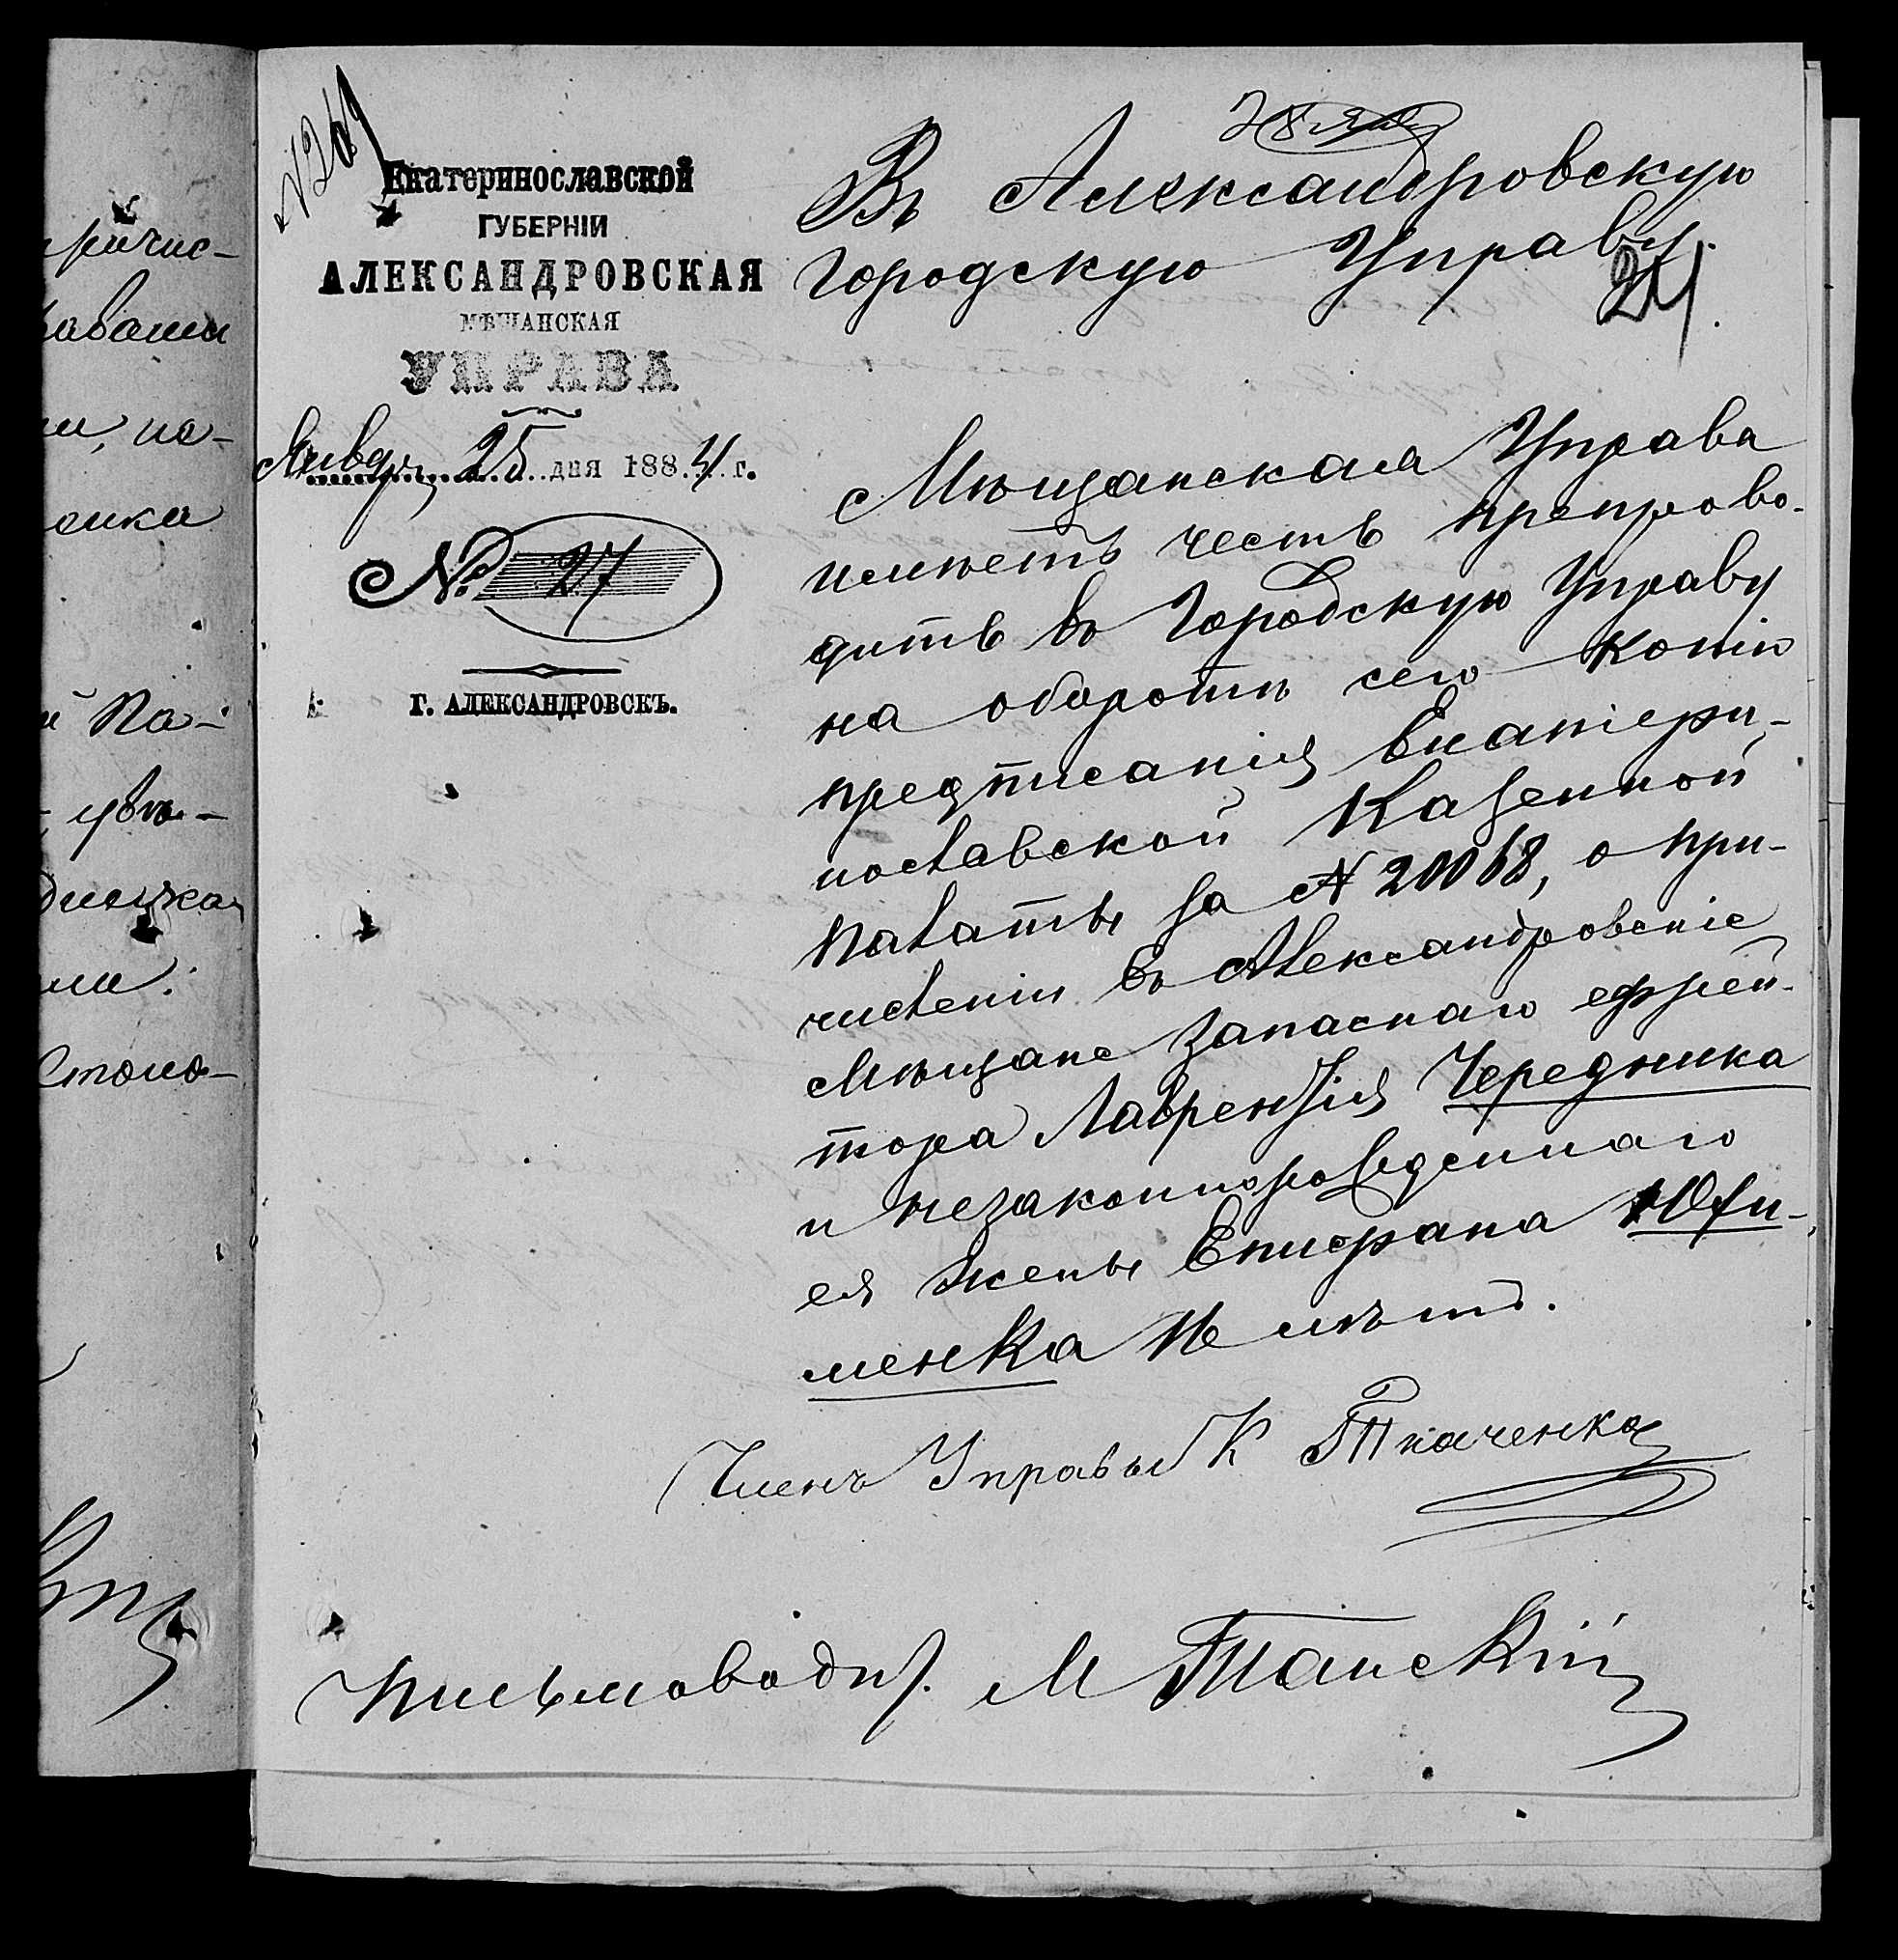 № 269
Екатеринославской
ГУБЕРНІИ
АЛЕКСАНДРОВСКАЯ
МѢЩАНСКАЯ
УПРАВА
Января 25 дня 1884 г.
№ 27
Г. АЛЕКСАНДРОВСКЪ.
28 Янв
Въ Александровскую
Городскую Управу.
24.
Мѣщанская Управа
имѣетъ честь препрово-
дить въ Городскую Управу
на оборотѣ сего копію
предписанія Екатери-
нославской Казенной
Палаты за № 20068, о при-
численіи въ Александровскіе
Мѣщане запаснаго ефрей-
тора Лаврентія Чередника
и незаконнорожденнаго
ея жены Епифана Юхи-
менка
Членъ Управы К Ткаченко
Письмоводи. М Танскій
ричис-
ки, по-
енка
й Па-
увѣ-
ми.
Столо-